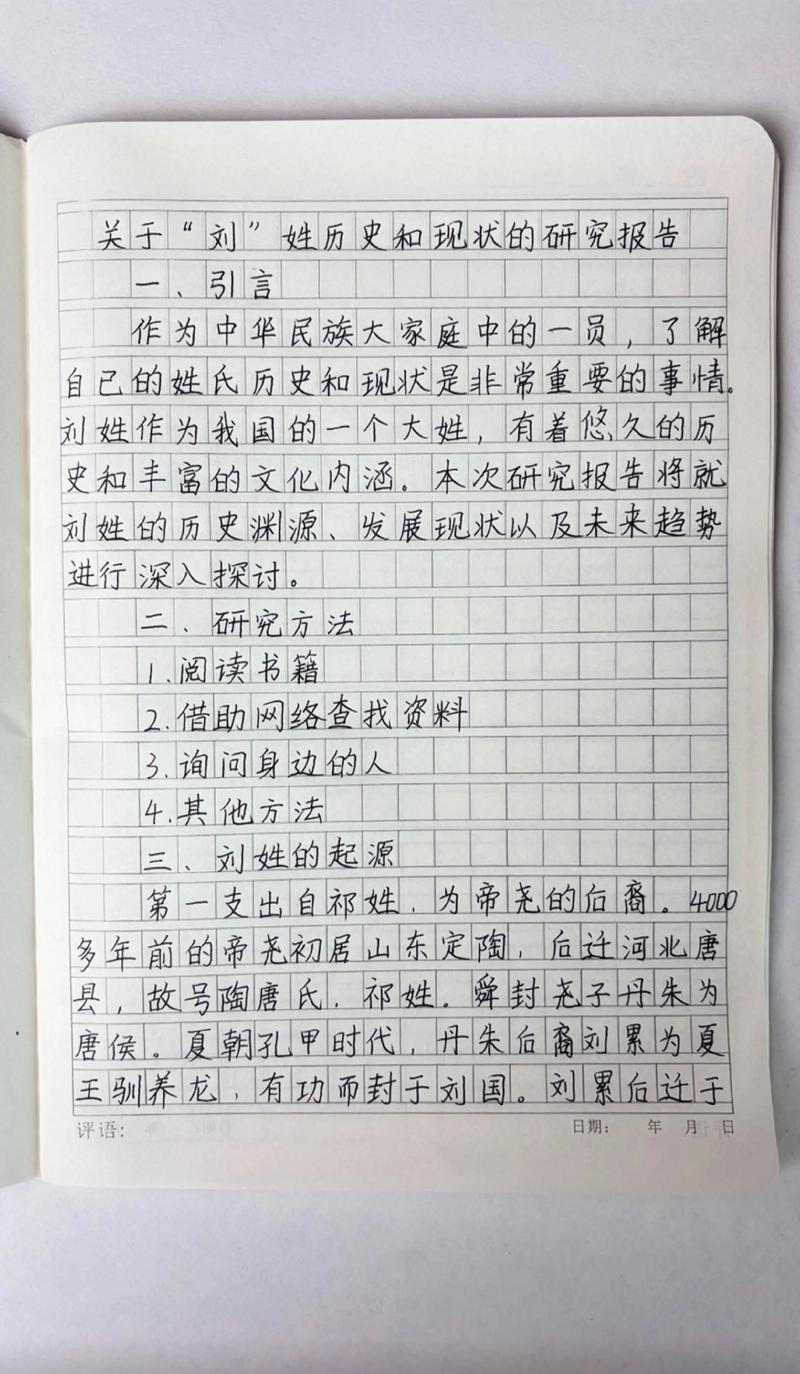 关于“刘”姓历史和现状的研究报告
一、引言
作为中华民族大家庭中的一员，了解
自己的姓氏历史和现状是非常重要的事情。
刘姓作为我国的一个大姓，有着悠久的历
史和丰富的文化内涵。本次研究报告将就
刘姓的历史渊源、发展现状以及未来趋势
进行深入探讨。
二、研究方法
1.阅读书籍
2.借助网络查找资料
3.询问身边的人
4.其他方法
三、刘姓的起源
第一支出自祁姓，为帝尧的后裔。4000
多年前的帝尧初居山东定陶，后迁河北唐
县，故号陶唐氏，祁姓。舜封尧子丹朱为
唐侯。夏朝孔甲时代，丹朱后裔刘累为夏
王驯养龙，有功而封于刘国。刘累后迁于
评语: 日期: 年 月 日